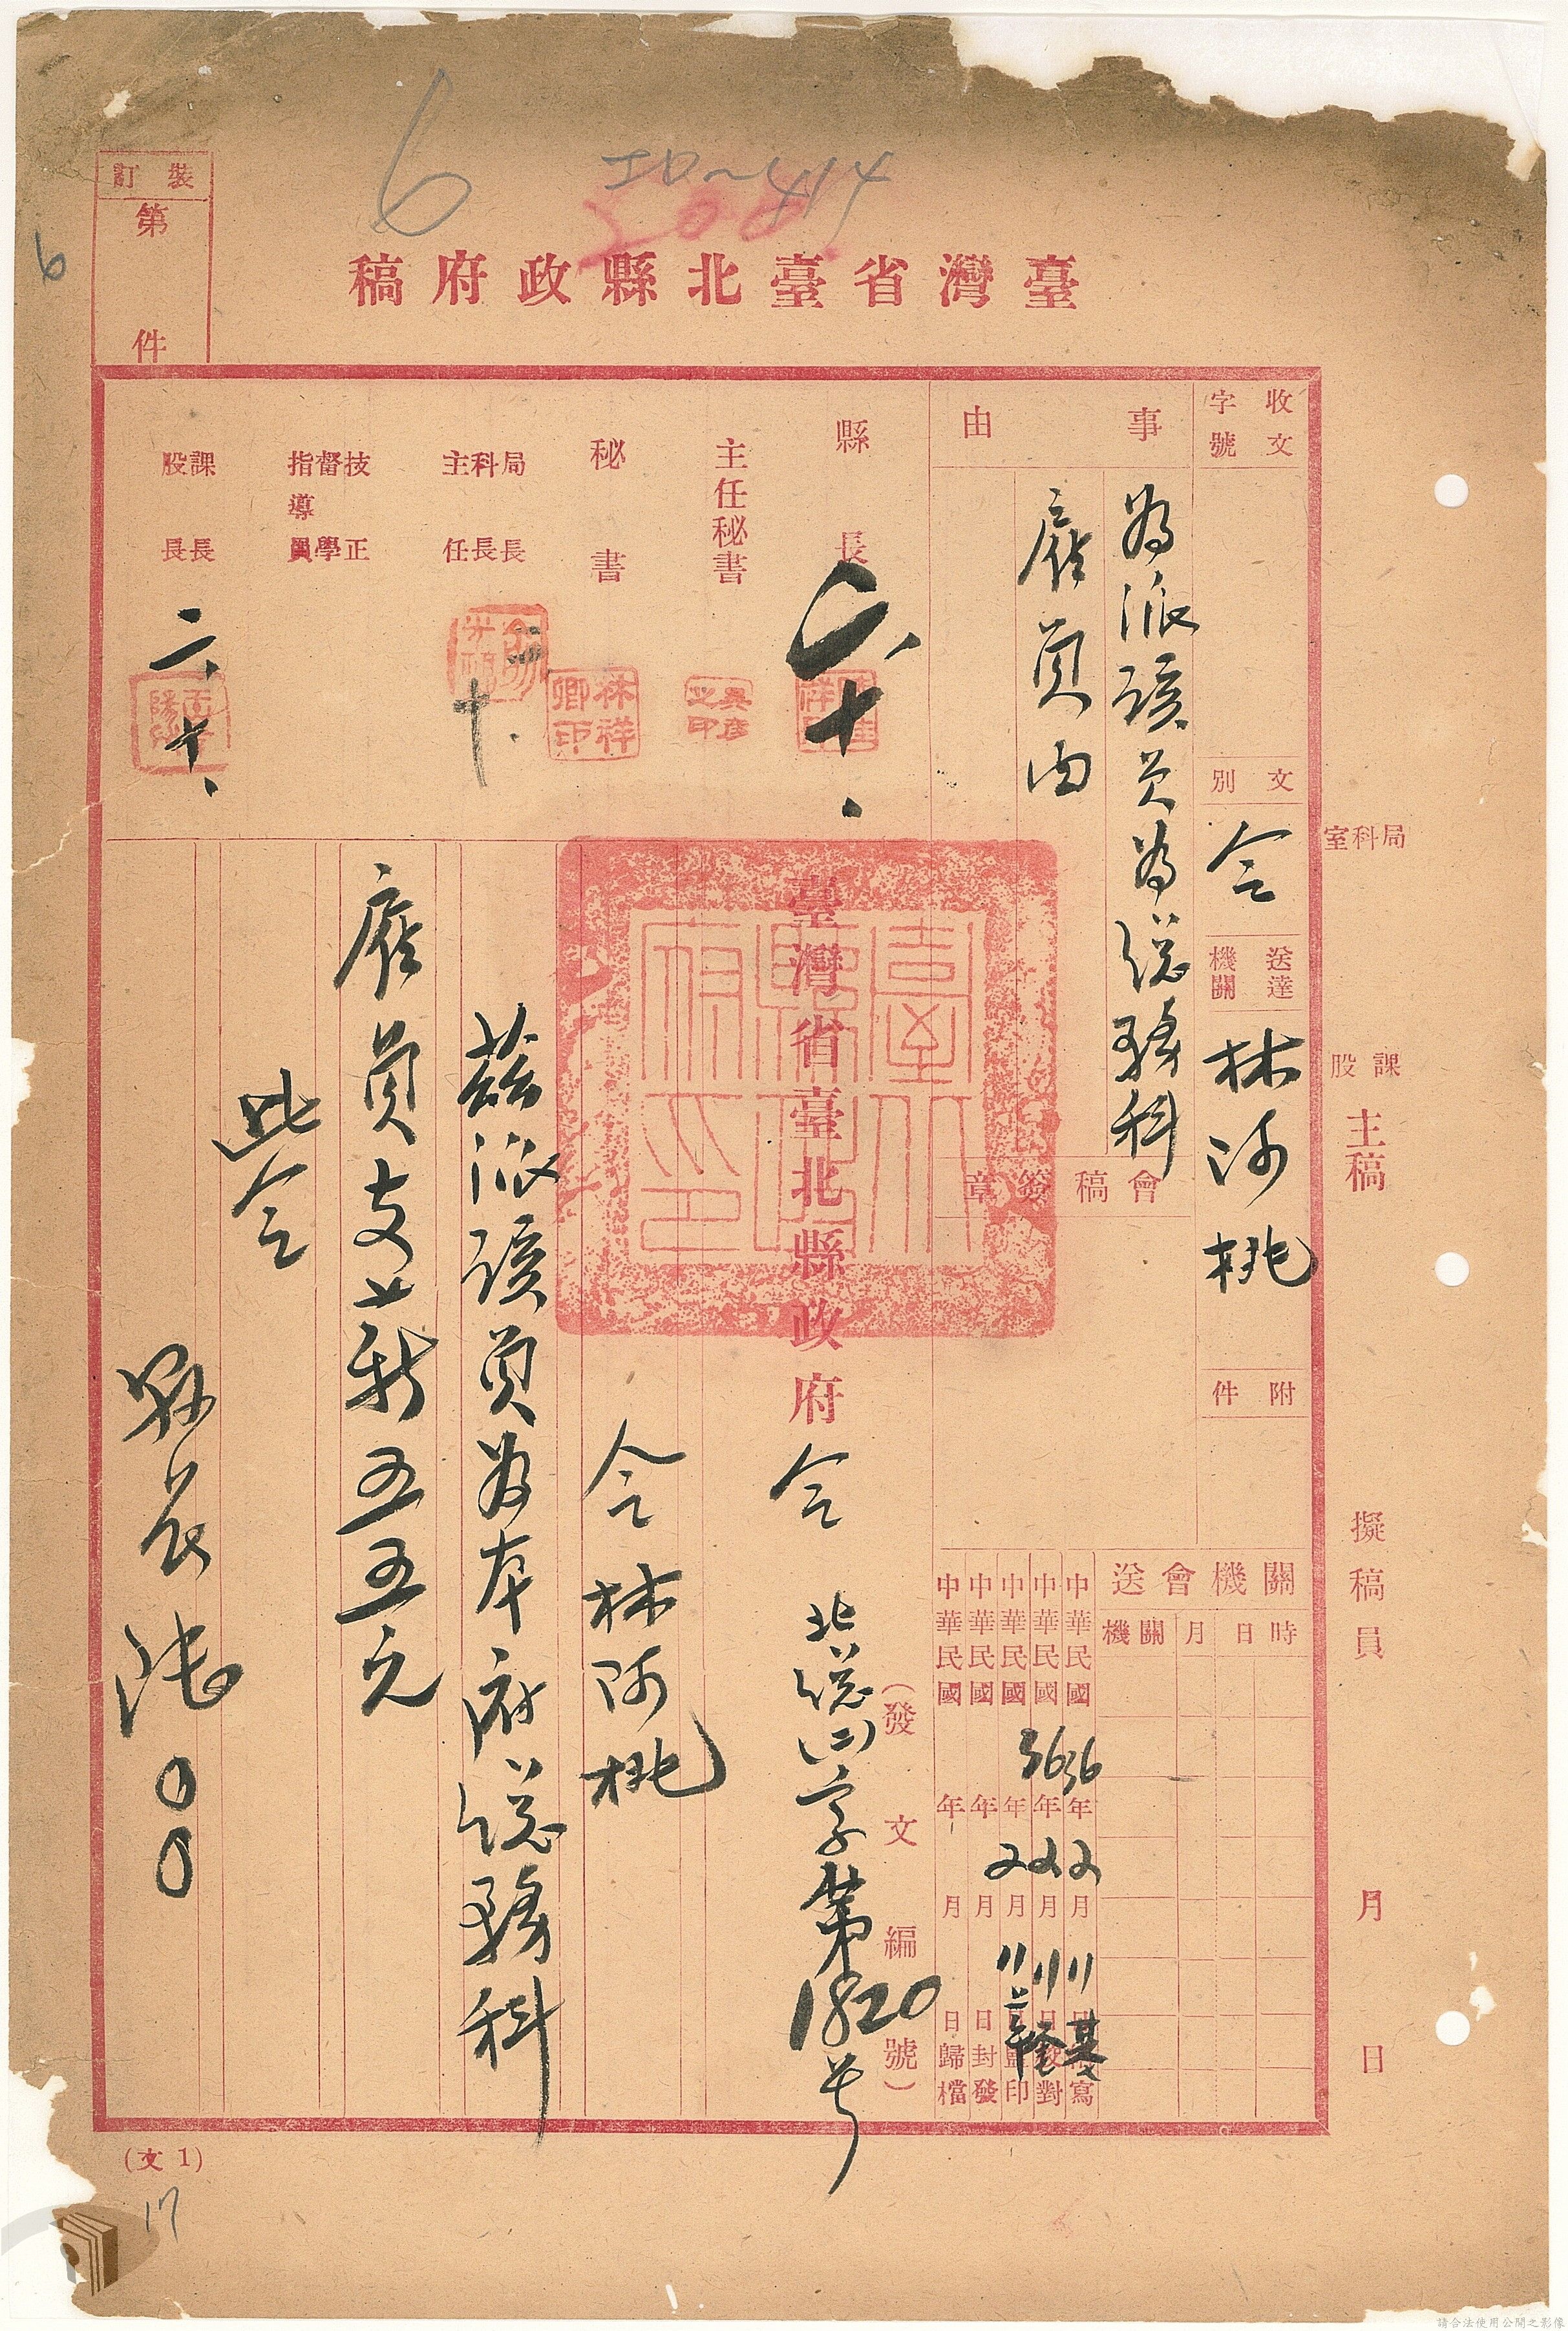 6
ID~414
臺灣省臺北縣政府稿
裝訂
第 件
6
收文
字號
文別
令
送達機關
林阿桃
附件
事由
為派該員為總務科
雇員由
會稿簽章
縣長
二、十、
主任秘書
吳彥之印
秘書
林祥卿印
局長
科長
主任
二、十、
技正
督學
指導員
課長
股長
二、十、
局科室
課股
主稿
擬稿員
月 日
送會機關
機關 月 日 時
中華民國36年2月11日繕寫
中華民國36年2月11日校對
中華民國 年2月11日監印
中華民國 年 月 日封發
中華民國 年 月 日歸檔
臺灣省臺北縣政府令
(發文編號)
北總(二)字第1820号
令林阿桃
茲派該員為本府總務科
雇員支薪五五元
此令
縣長陸〇〇
(文1)
17
請合法使用公開之影像